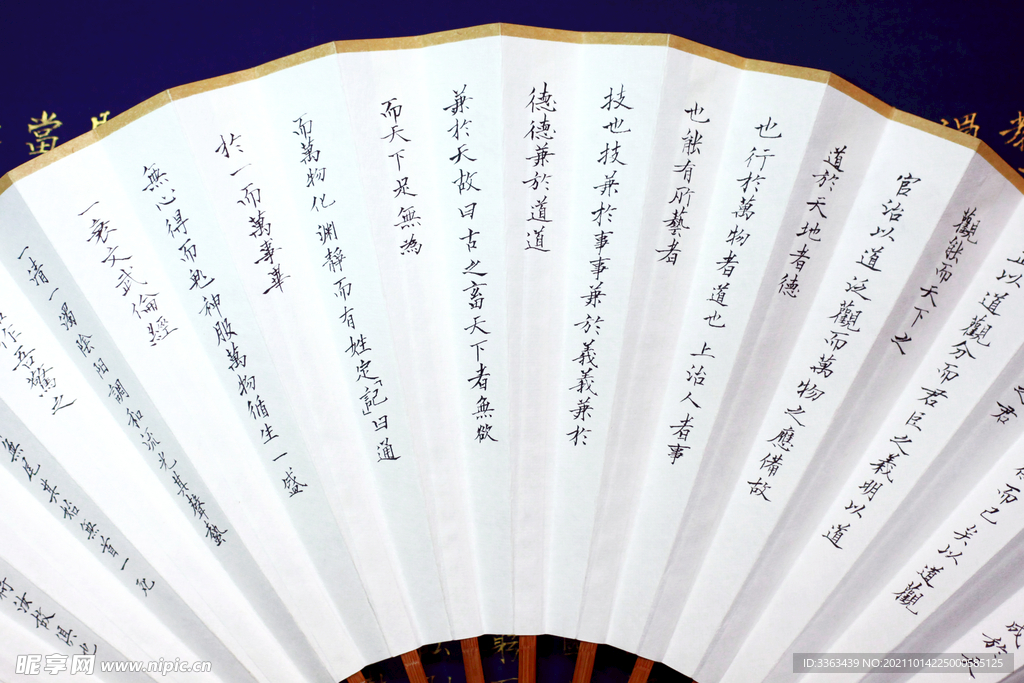 之君
而已矣以道觀
正以道觀分而君臣之義明以道
觀能而天下之
官治以道泛觀而萬物之應備故
道於天地者德
也行於萬物者道也上治人者事
也能有所藝者
技也技兼於事事兼於義義兼於
德德兼於道道
兼於天故曰古之畜天下者無欲
而天下足無為
而萬物化淵靜而有姓定記曰通
於一而萬事畢
無心得而鬼神服萬物循生一盛
一衰文武倫經
一清一濁陰陽調和流光其聲蟄
作吾驚之
無尾其始無首一死
當
昵享网 www.nipic.cn
ID:3363439 NO:20211014225000585125